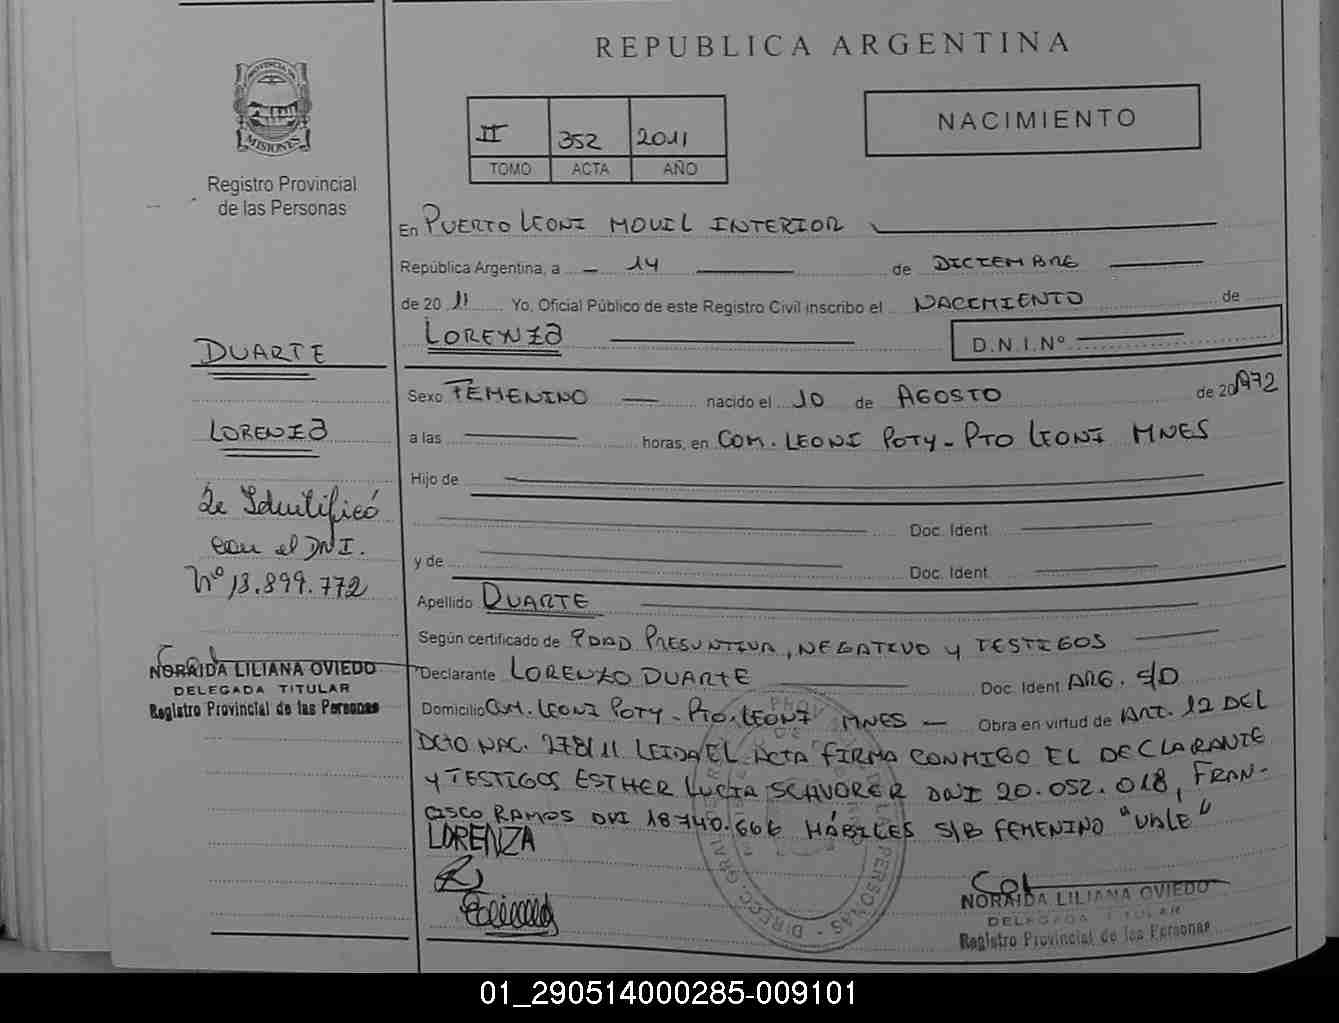 REPUBLICA ARGENTINA
PROVINCIA DE
MISIONES
Registro Provincial
de las Personas
II 352 2011
TOMO ACTA AÑO
NACIMIENTO
En PUERTO LEONI MOVIL INTERIOR
República Argentina, a 14 de DICIEMBRE
de 20 11 Yo, Oficial Público de este Registro Civil inscribo el NACIMIENTO de
LORENZA D.N.I.Nº
DUARTE
Sexo FEMENINO nacido el 10 de AGOSTO de 20 1972
LORENZA
a las horas, en COM. LEONI POTY - PTO LEONI MNES
Hijo de
Se Identificó
con el DNI.
Nº 13.899.772
Doc. Ident
y de
Doc. Ident
Apellido DUARTE
Según certificado de EDAD PRESUNTIVA, NEGATIVO Y TESTIGOS
NORAIDA LILIANA OVIEDO
DELEGADA TITULAR
Registro Provincial de las Personas
Declarante LORENZO DUARTE Doc. Ident ARG. S/D
Domicilio COM. LEONI POTY - PTO. LEONI MNES - Obra en virtud de ART. 12 DEL
DCTO NAC. 278/11 LEIDA EL ACTA FIRMA CONMIGO EL DECLARANTE
Y TESTIGOS ESTHER LUCIA SCHVORER DNI 20.052.018, FRAN-
CISCO RAMOS DNI 18740.666 HÁBILES S/B FEMENINO "VALE"
LORENZA
NORAIDA LILIANA OVIEDO
DELEGADA TITULAR
Registro Provincial de las Personas
01_290514000285-009101